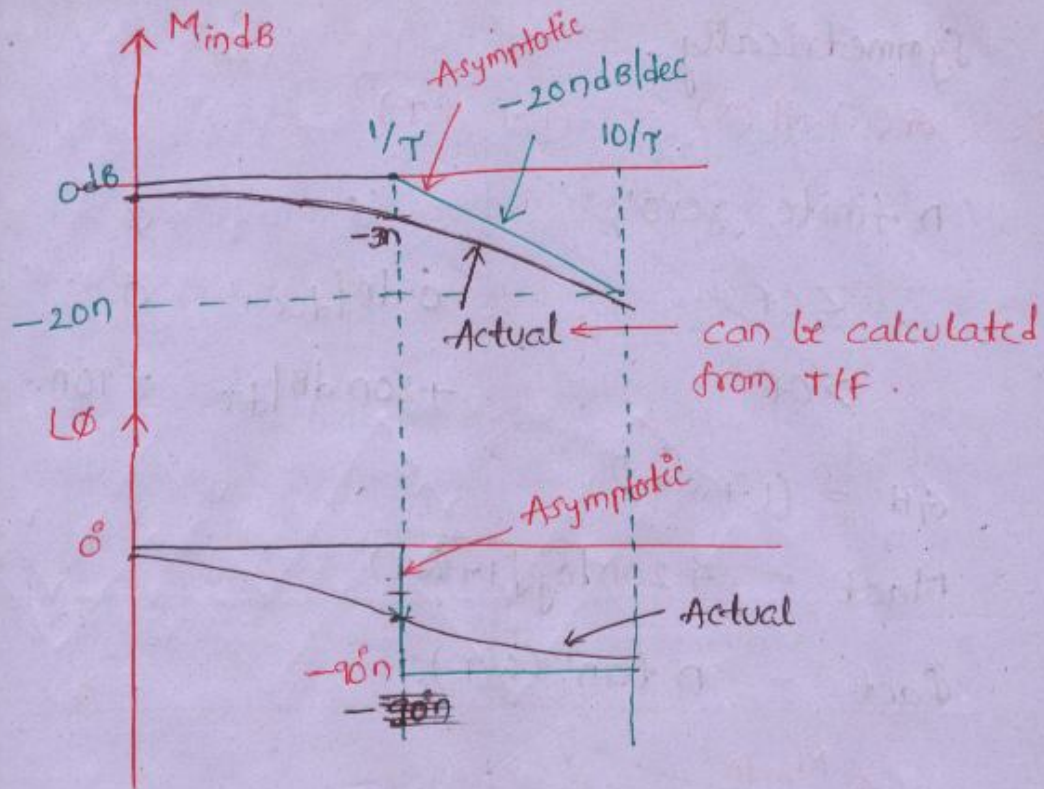 M in dB
Asymptotic
-20n dB/dec
1/τ
10/τ
0dB
-3n
-20n
Actual
can be calculated
from T/F.
∠Ø
0°
Asymptotic
Actual
-90°n